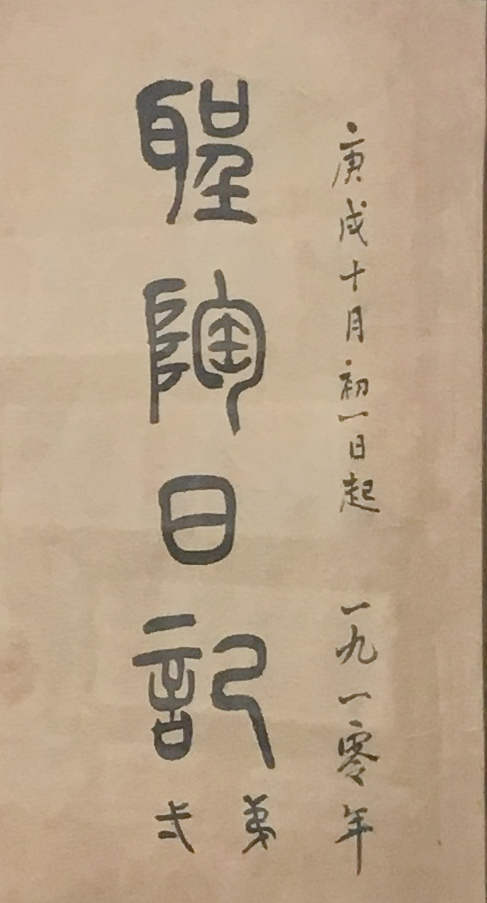 庚戌十月初一日起 一九一零年
聖陶日記
弟弍